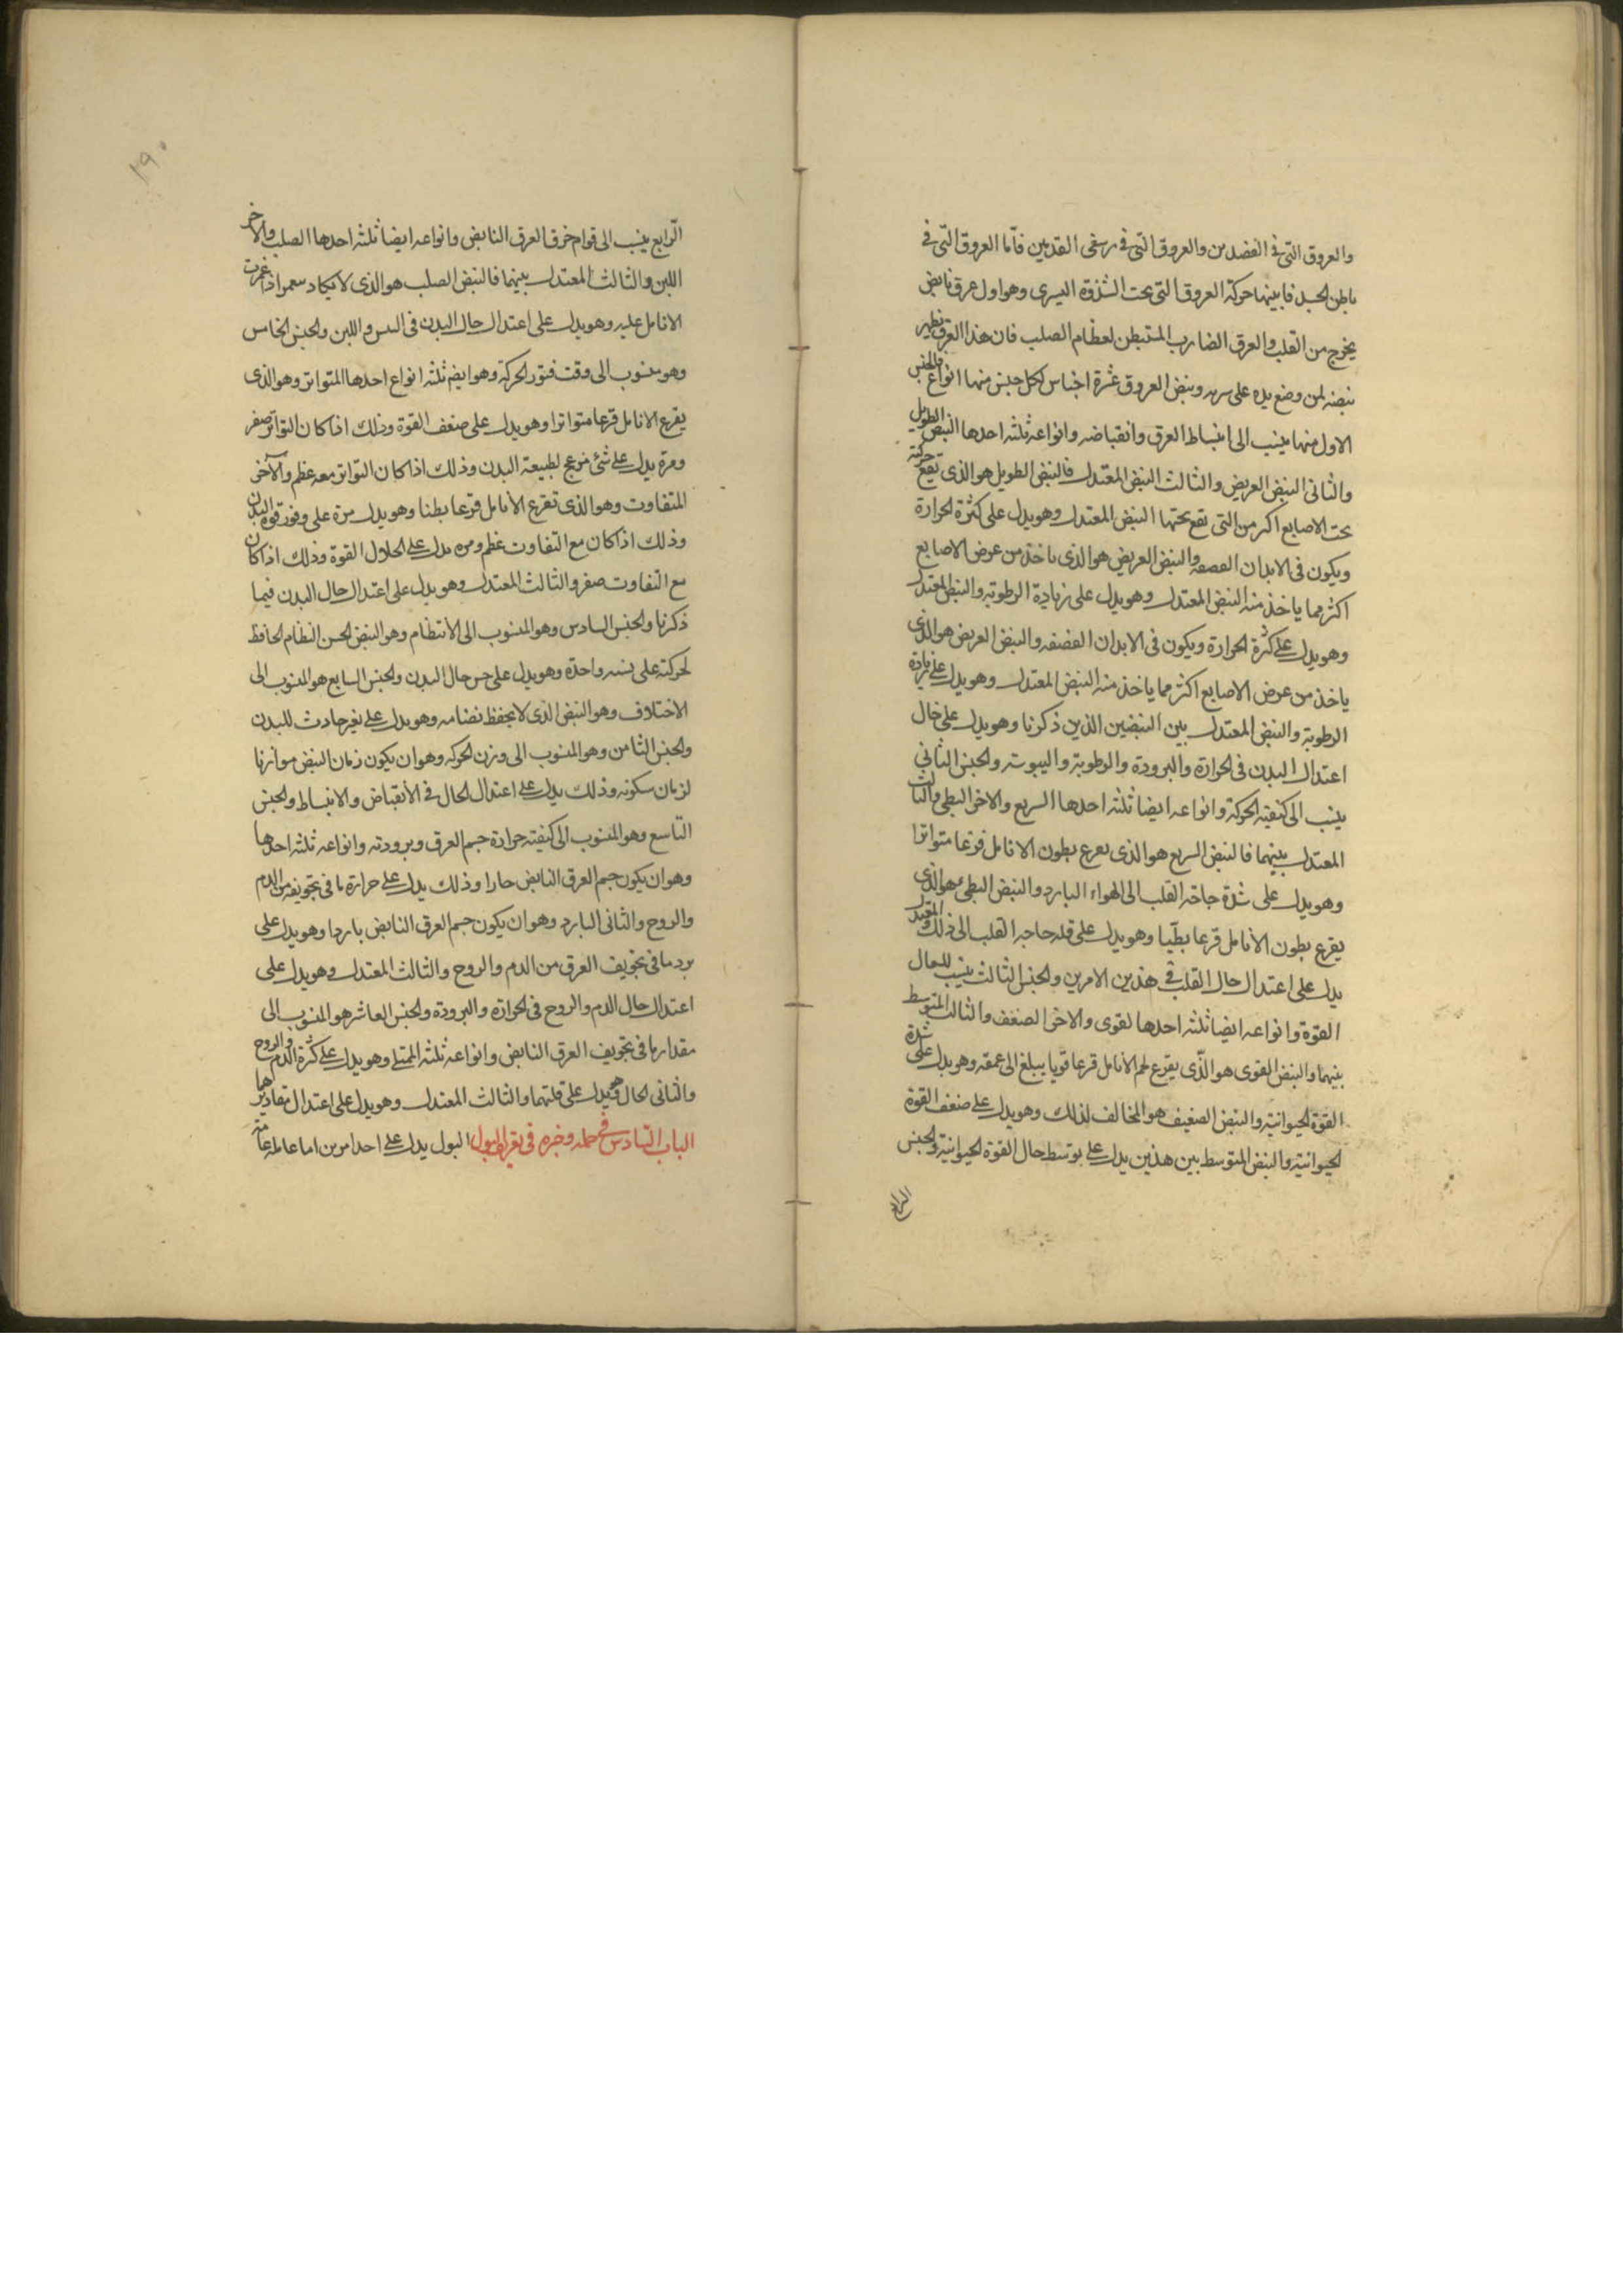 والعروق التى فى العضدين والعروق التى فى رسغى القدمين فاما العروق التى فى
باطن الجسد فابينها حركة العروق التى تحت الثندوة اليسرى وهو اول عرق نابض
يخرج من القلب والعرق الضارب المستبطن لعظام الصلب فان هذا العرق تظهر
نبضه لمن وضع يده على سرته ونبض العروق عشرة اجناس لكل جنس منها انواع فالجنس
الاول منها ينسب الى انبساط العرق وانقباضه وانواعه ثلثه احدها النبض الطويل
والثانى النبض العريض والثالث النبض المعتدل فالنبض الطويل هو الذى تقع حركته
تحت الاصابع اكثر من التى تقع تحتها النبض المعتدل وهو يدل على كثرة الحرارة
ويكون فى الابدان القضيفه والنبض العريض هو الذى ياخذ من عرض الاصابع
اكثر مما ياخذ منه النبض المعتدل وهو يدل على زيادة الرطوبة والنبض المعتدل
وهو يدل على كثرة الحرارة ويكون فى الابدان القضيفه والنبض العريض هو الذى
ياخذ من عرض الاصابع اكثر مما ياخذ منه النبض المعتدل وهو يدل على زيادة
الرطوبة والنبض المعتدل بين النبضين الذين ذكرنا وهو يدل على حال
اعتدال البدن فى الحرارة والبرودة والرطوبة واليبوسة والجنس الثانى
ينسب الى كيفية الحركة وانواعه ايضا ثلثه احدها السريع والاخر البطى والثالث
المعتدل بينهما فالنبض السريع هو الذى يقرع بطون الانامل قرعا متواترا
وهو يدل على شدة حاجة القلب الى الهواء البارد والنبض البطى هو الذى
يقرع بطون الانامل قرعا بطيا وهو يدل على قلة حاجه القلب الى ذلك والمعتدل
يدل على اعتدال حال القلب فى هذين الامرين والجنس الثالث ينسب للحال
القوة وانواعه ايضا ثلثه احدها القوى والاخر الضعف والثالث المتوسط
بينهما والنبض القوى هو الذى يقرع لحم الانامل قرعا قويا يبلغ الى عمقه وهو يدل على شدة
القوة الحيوانية والنبض الضعيف هو المخالف لذلك وهو يدل على ضعف القوة
الحيوانية والنبض المتوسط بين هذين يدل على توسط حال القوة الحيوانية والجنس
الرابع
١٩٠
الرابع ينسب الى قوام خرق العرق النابض وانواعه ايضا ثلثه احدها الصلب والاخر
اللين والثالث المعتدل بينهما فالنبض الصلب هو الذى لا يكاد اذا غمزت
الانامل عليه وهو يدل على اعتدال حال البدن فى اليبس واللين والجنس الخامس
وهو منسوب الى وقت فتور الحركة وهو ايضا ثلثه انواع احدها المتواتر وهو الذى
يقرع الانامل قرعا متواترا وهو يدل على ضعف القوة وذلك اذا كان التواتر صغر
ومرة يدل على شئ مزعج لطبيعة البدن وذلك اذا كان التواتر معه عظم والآخر
المتفاوت وهو الذى تقرع الانامل قرعا بطنا وهو يدل مرة على وفور قوة البدن
وذلك اذا كان مع التفاوت عظم ومره يدل على انحلال القوة وذلك اذا كان
مع التفاوت صغر والثالث المعتدل وهو يدل على اعتدال حال البدن فيما
ذكرنا والجنس السادس وهو المنسوب الى الانتظام وهو النبض الحسن النظام الحافظ
لحركته على نسبه واحدة وهو يدل على حسن حال البدن والجنس السابع هو المنسوب الى
الاختلاف وهو النبض الذى لا يحفظ نضامه وهو يدل على تغير حادث للبدن
والجنس الثامن وهو المنسوب الى وزن الحركه وهو ان يكون زمان النبض موازنا
لزمان سكونه وذلك يدل على اعتدال الحال فى الانقباض والانبساط والجنس
التاسع وهو المنسوب الى كيفية حرارة جسم العرق وبرودته وانواعه ثلثه احدها
وهو ان يكون جسم العرق النابض حارا وذلك يدل على حرارة ما فى تجويفه من الدم
والروح والثانى البارد وهو ان يكون جسم العرق النابض باردا وهو يدل على
برد ما فى تجويف العرق من الدم والروح والثالث المعتدل وهو يدل على
اعتدال حال الدم والروح فى الحرارة والبرودة والجنس العاشر هو المنسوب الى
مقدار ما فى تجويف العرق النابض وانواعه ثلثه الممتلى وهو يدل على كثرة الدم والروح
والثانى الخال وهو يدل على قلتهما والثالث المعتدل وهو يدل على اعتدال مقاديرهما
الباب السادس فى جمله وخبره فى البول البول يدل على احد امرين اما عامله عامة